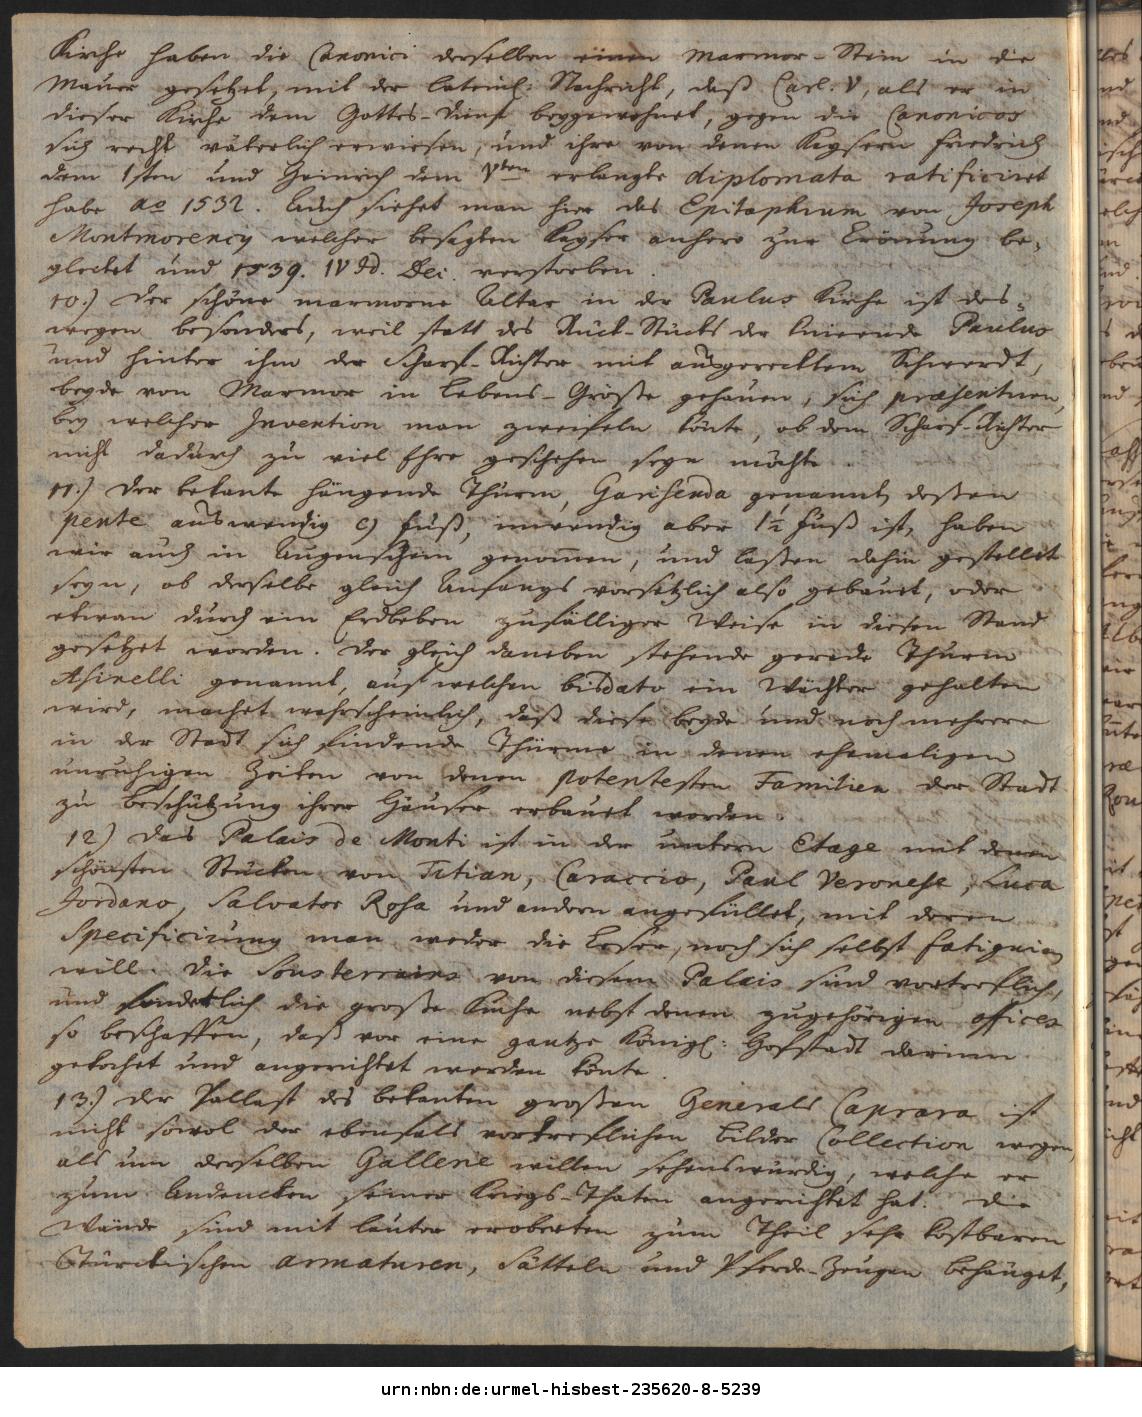 Kirche haben die Canonici derselben einen Marmor-Stein in die
Mauer gesetzet, mit der lateinl: Nachricht, daß Carl. V, als er in
dieser Kirche dem Gottes-dienst beygewohnet, gegen die Canonicos
sich recht väterlich erwiesen, und ihre von denen Kaysern Friedrich
dem 1sten und Heinrich dem Vten erlangte diplomata ratificiret
habe Ao 1532. Auch siehet man hier das Epitaphium von Joseph
Montmorency welcher besagten Kayser anhero zur Crönung be-
gleitet und 1539. IV Id. Dec. verstorben.
10.) Der schöne marmorne Altar in der Paulus Kirche ist des-
wegen besonders, weil statt des Rück-Stücks der knieende Paulus
und hinter ihm der Scharf-Richter mit ausgerecktem Schwerdt,
beyde von Marmor in Lebens-Größe gehauen, sich præsentiren,
bey welcher Invention man zweifeln könte, ob dem Scharf-Richter
nicht dadurch zu viel Ehre geschehen seyn möchte.
11.) Der bekante hängende Thurm, Garisenda genannt, deßen
pente auswendig 9 Fuß, inwendig aber 1½ Fuß ist, haben
wir auch in Augenschein genommen, und laßen dahin gestellet
seyn, ob derselbe gleich Anfangs vorsetzlich also gebauet, oder
etwan durch ein Erdbeben zufälliger Weise in diesen Stand
gesetzet worden. Der gleich daneben stehende gerade Thurm
Asinelli genannt, auf welchen bisdato ein Wächter gehalten
wird, machet wahrscheinlich, daß diese beyde und noch mehrere
in der Stadt sich findende Thürme in denen ehemaligen
unruhigen Zeiten von denen potentesten Familien der Stadt
zu Beschützung ihrer Häuser erbauet worden.
12) Das Palais de Monti ist in der untern Etage mit denen
schönsten Stücken von Titian, Caraccio, Paul Veronese, Luca
Jordano, Salvator Rosa und andern angefüllet, mit deren
Specificirung man weder die Leser, noch sich selbst fatiguiren
will. Die Sousterrains von diesem Palais sind vortreflich,
und sonderlich die große Küche nebst denen zugehörigen offices
so beschaffen, daß vor eine gantze Königl: Hofstadt darinn
gekochet und angerichtet werden könte.
13.) Der Pallast des bekanten großen Generals Caprara ist
nicht sowol der ebenfals vortreflichen Bilder Collection wegen,
als um derselben Gallerie willen sehenswürdig, welche er
zum Andencken seiner Kriegs-Thaten angerichtet hat. Die
Wände sind mit lauter eroberten zum Theil sehr kostbaren
Türckischen armaturen, Sätteln und Pferde-Zeugen behänget,
urn:nbn:de:urmel-hisbest-235620-8-5239